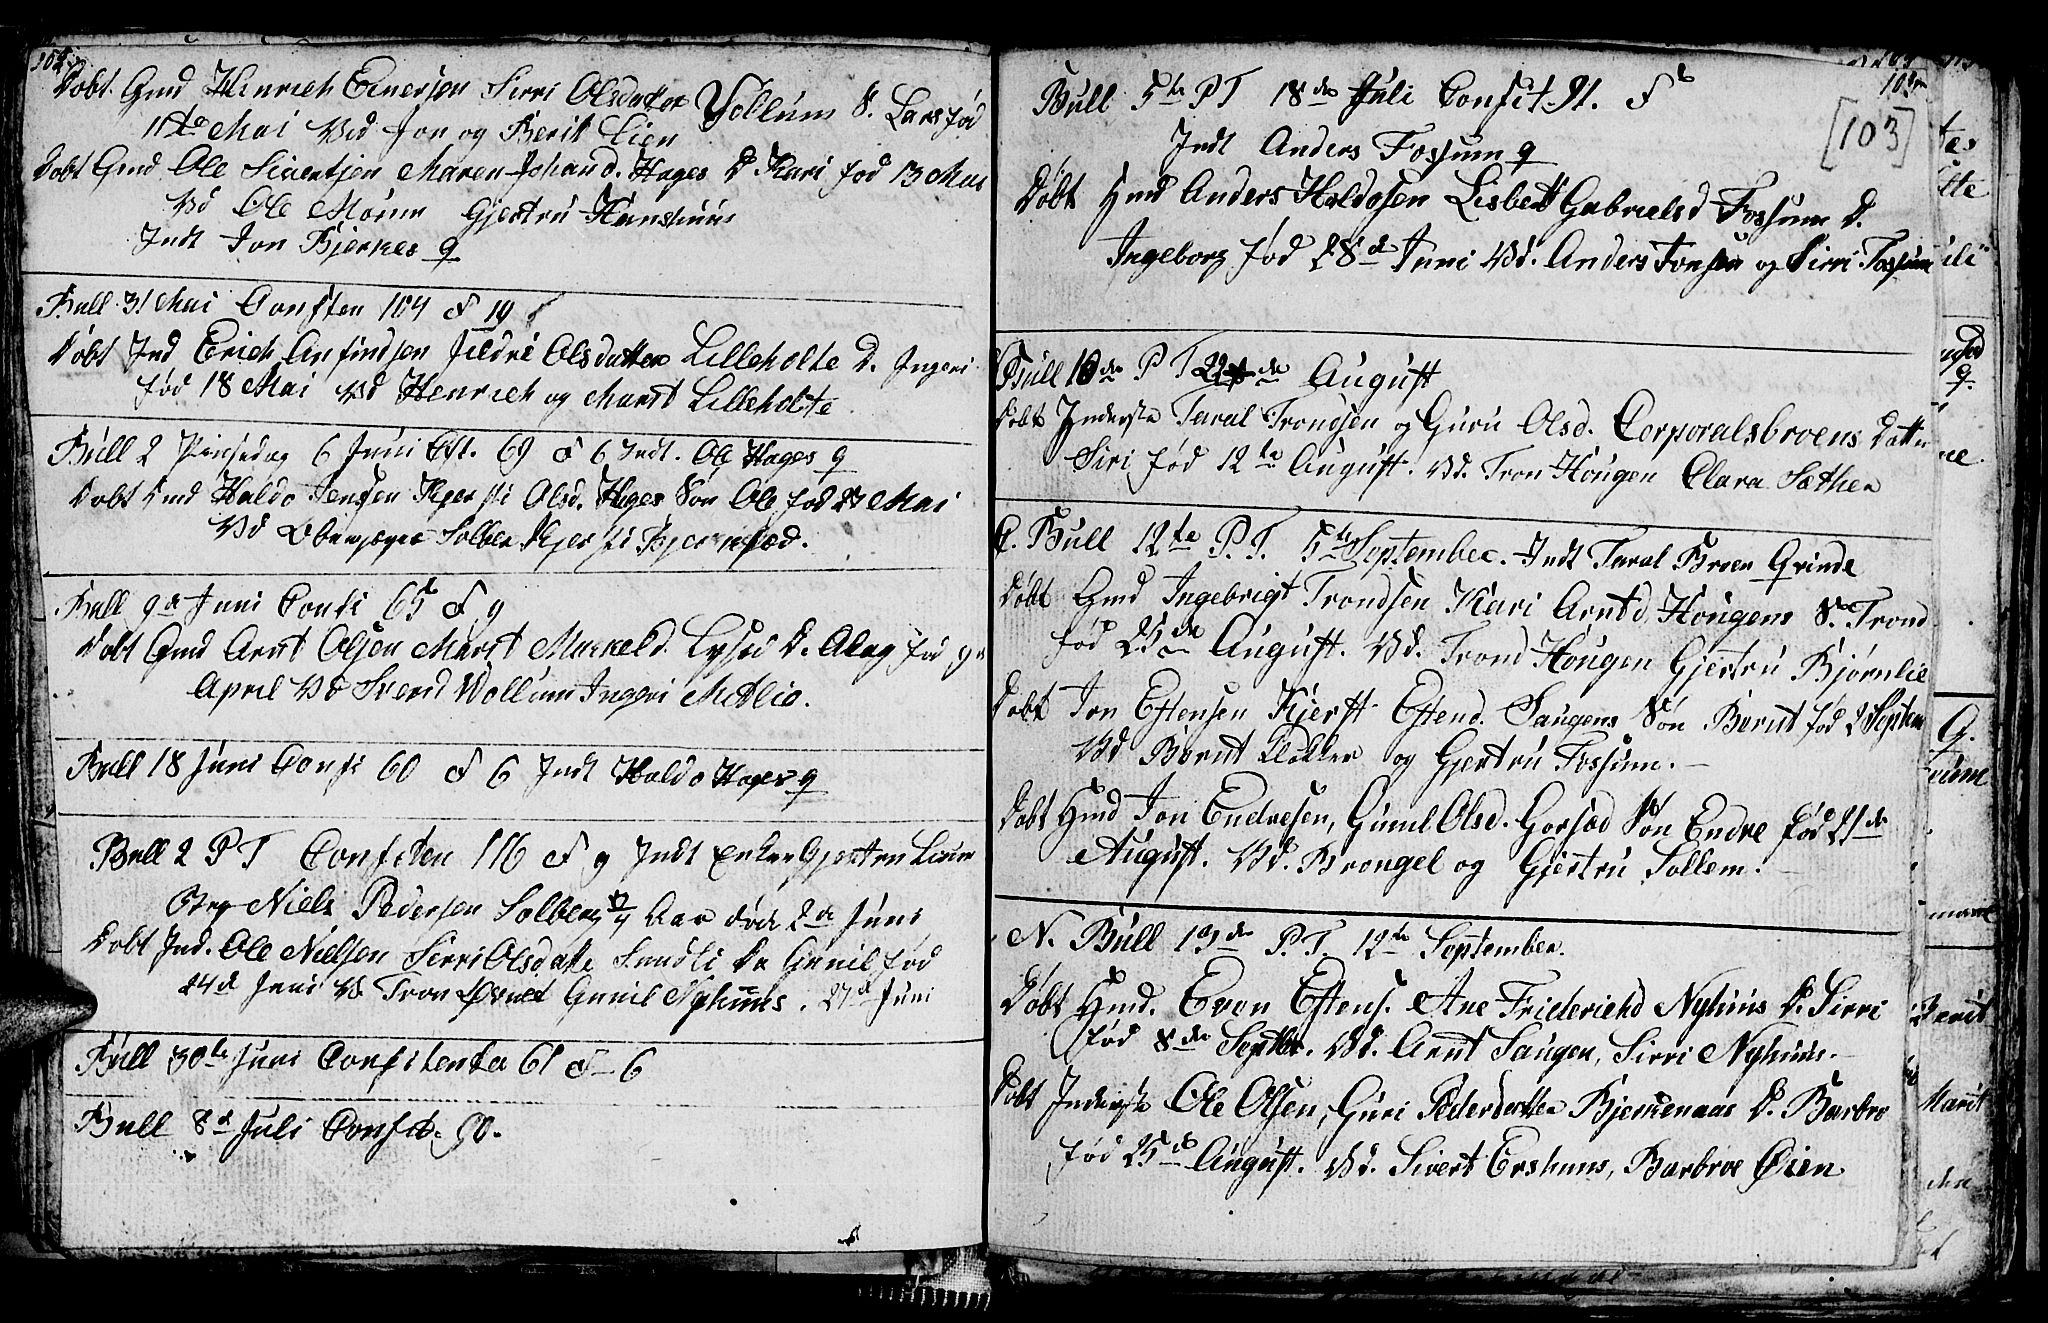 102
Døbt Gmd Hinrich Einersen Sirri Olsdatter Vollum S. Lars fød
11te Mai Vd Jon og Berit Lien
Døbt Gmd Ole Sivertsen Maren Johand. Hages D. Kari fød 13 Mai
Vd Ole Moum Gjertru Hanshuus
Indt Jon Bjerkes q
Bull 31 Mai Confiten 104 f 14
Døbt Ind Erich Anfindsen Sildri Olsdatter Lilleholte D. Ingeri
fød 18 Mai Vd Henrich og Marit Lilleholte
Bull 2 Pinsedag 6 Juni Cft. 69 f 6 Indt. Ole Hages q
Døbt Gmd Haldo Jensen Kjersti Olsd. Hages Søn Ole fød 27 Mai
Vd Oberjæger Solber Kjersti
Bull 9de Juni Confi 65 f 9
Døbt Gmd Arnt Olsen Marit Lysod D. Alog fød 9de
April Vd Svend Vollum Ingeri Mælie.
Bull 18 Juni Confi 60 f 6 Indt Haldo Hages q
Bull 2 P T Confiten 116 f 9 Indt Enken Gjertru Lium
Niels Pedersen Solberg Aar døde 2de Juni
Døbt Ind. Ole Nielsen Sirri Olsdatte Sundli Da Gunil fød
24d Juni Vd Tron Gunil Nyhuus. 27d Juni
Bull 30te Juni Confitenter 61 f 6
Bull 8d Juli Confit. 90.
[103]
Bull 5te P T 18de Juli Confit. 91. f 6
Indt Anders Fossum q
Døbt Hmd Anders Haldosen Lisbeth Gabrielsd Fossum D.
Ingeborg fød 28d Juni Vd. Anders Jonsen og Sirri Fossum
Bull 10de P T 22de August
Døbt Inderste Taral Trondsen og Guru Olsd. Corporalsbroens Datter
Siri fød 12te August. Vd. Tron Hougen Clara Sæther
G. Bull 12te P. T. 5te September. Indt Taral Broen Qvinde
Døbt Gmd Ingebrigt Trondsen Kari Arntd. Hougens S. Trond
fød 25de August. Vd. Trond Hougen Gjertru Bjørnlie
Døbt Jon Estensen Kjersti Estend. Saugens Søn Bernt fød 2 Septem
Vd Bernt Klokker og Gjertru Fossum.
Døbt Hmd Jon Endresen, Gunil Olsd. Gorsæd Søn Endre fød 21de
August. Vd. Brongel og Gjertru Sollem.
N. Bull 13de P. T. 12te September.
Døbt Hmd. Even Estens. Ane Friderichd Nyhuus D. Sirri
fød 8de Septbr. Vd. Arnt Saugen, Sirri Nyhuus.
Døbt Inderste Ole Olsen, Guri Pedersdatter Bjerkenaas D. Barbro
fød 25de August. Vd. Sivert Ershuus, Barbroe Øien